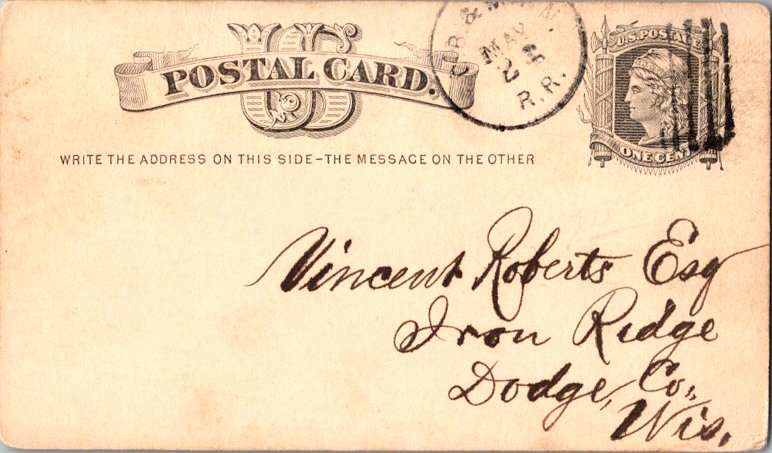 US
POSTAL CARD.
MAY
24
R. R.
U.S. POSTAGE
ONE CENT
WRITE THE ADDRESS ON THIS SIDE-THE MESSAGE ON THE OTHER
Vincent Roberts Esq
Iron Ridge
Dodge, Co.,
Wis.